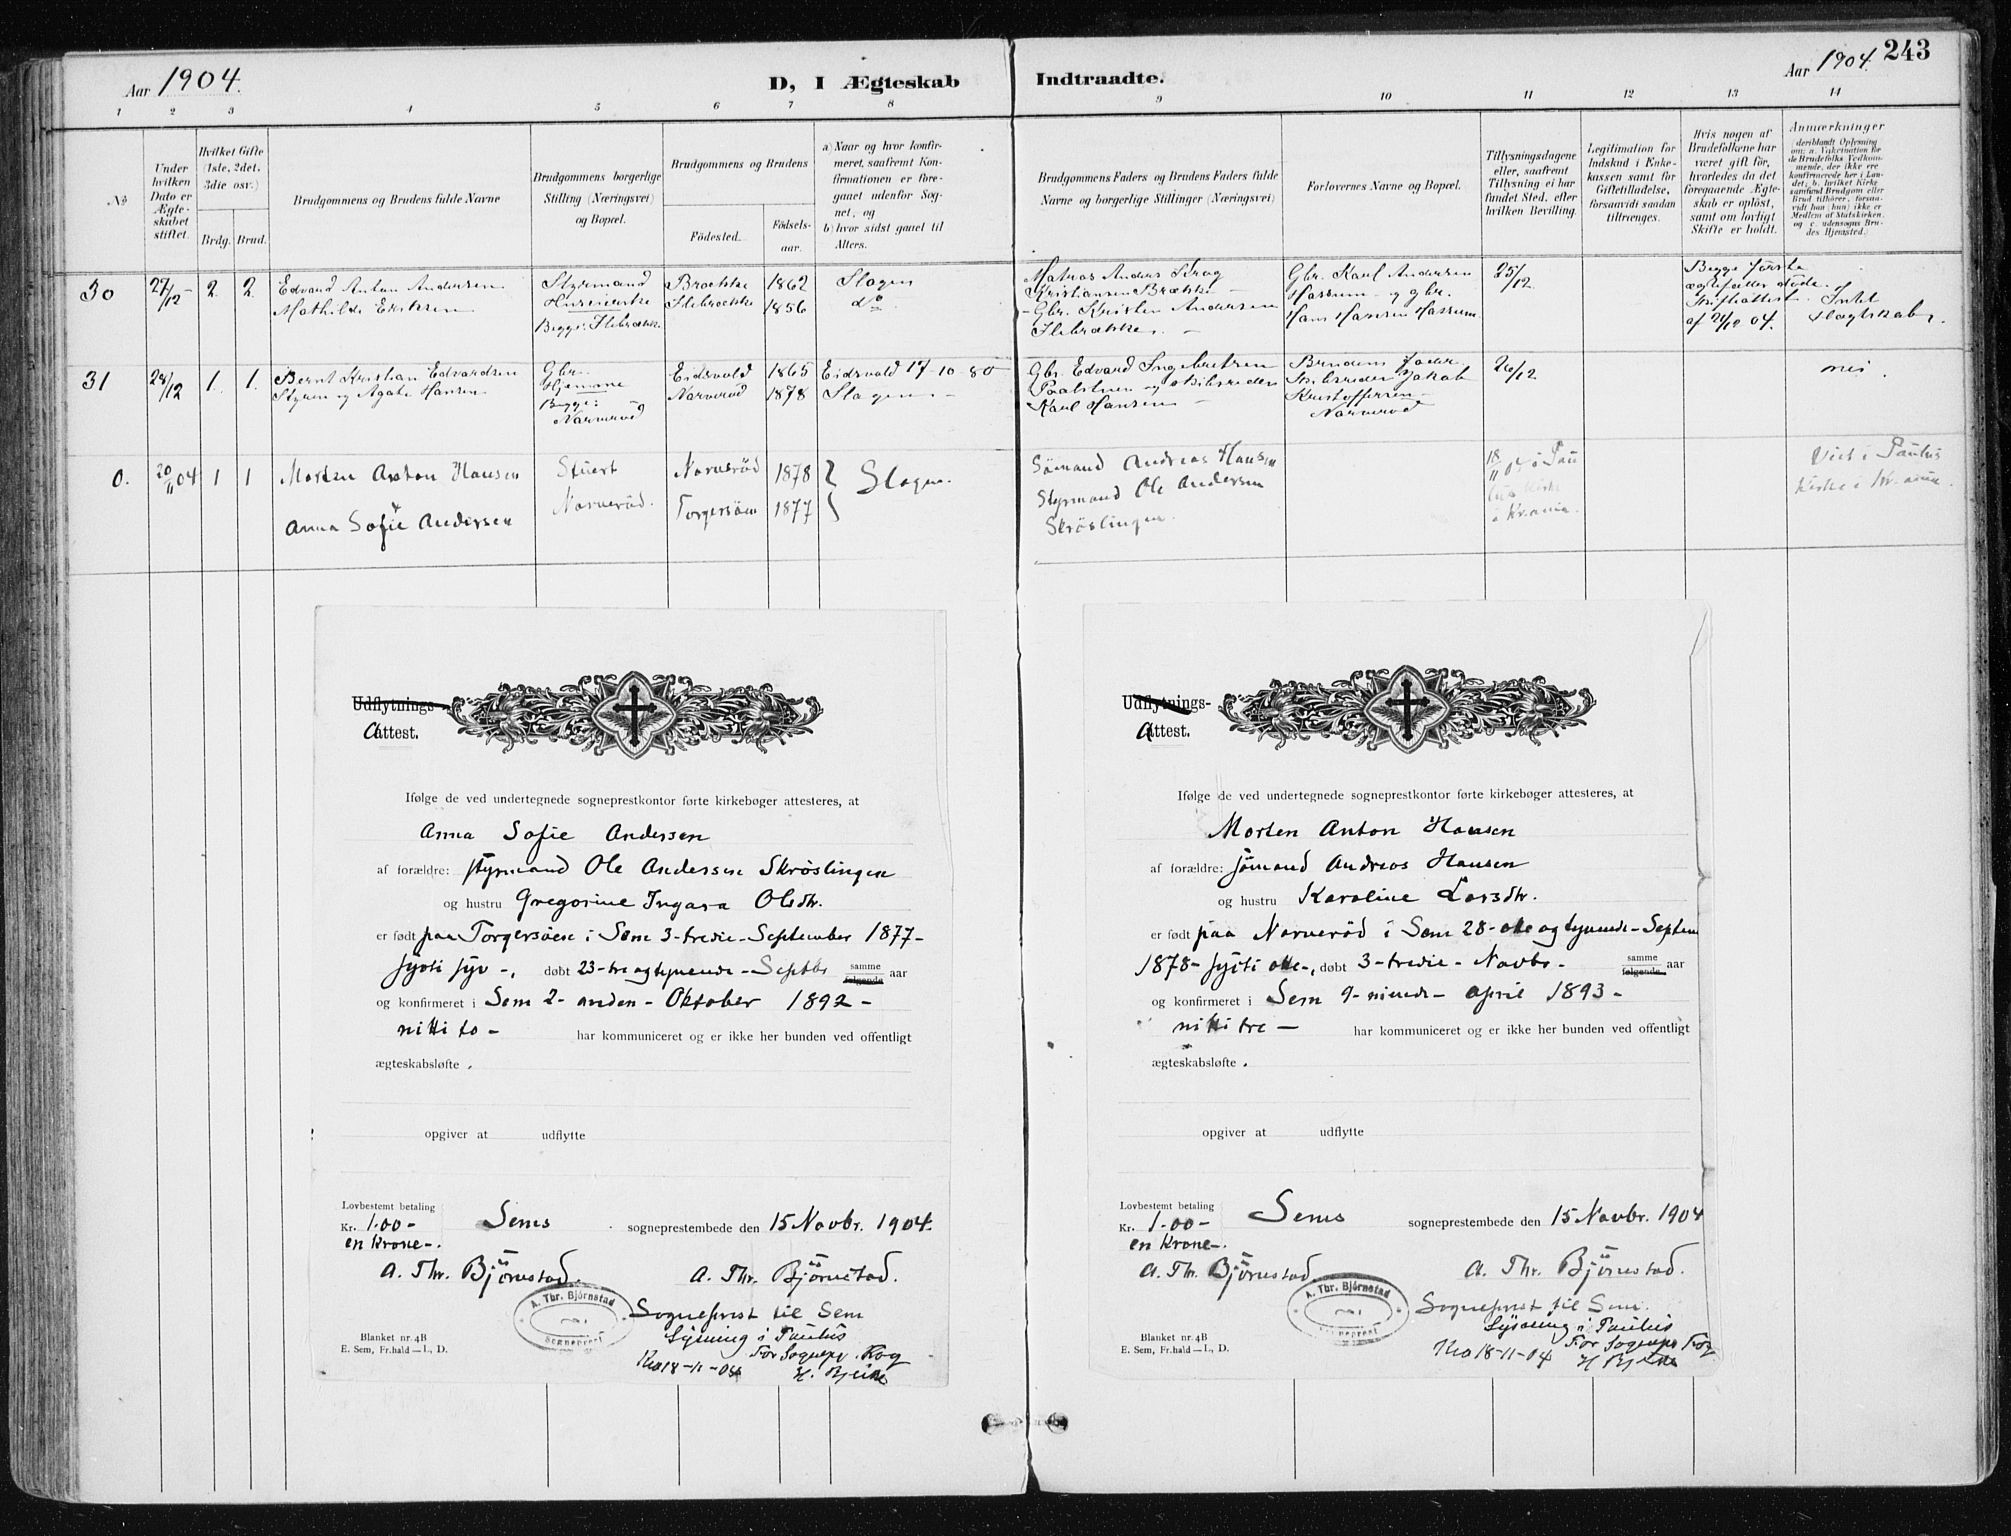 Aar 1904.
D, I Ægteskab
Indtraadte.
Aar 1904. 243
1 2 3 4 5 6 7 8 9 10 11 12 13 14
No
Under hvilken Dato er Ægte-skabet stiftet.
Hvilket Gifte (1ste, 2det, 3die osv.)
Brdg. Brud.
Brudgommens og Brudens fulde Navne
Brudgommens borgerlige Stilling (Næringsvei) og Bopæl.
Brudgommens og Brudens
Födested.
Födsels-aar.
a) Naar og hvor konfir-meret, saafremt Kon-firmationen er fore-gaaet udenfor Sog-net, og
b) hvor sidst gaaet til Alters.
Brudgommens Faders og Brudens Faders fulde Navne og borgerlige Stillinger (Næringsvei)
Forlovernes Navne og Bopæl.
Tillysningsdagene eller, saafremt Tillysning ei har fundet Sted, efter hvilken Bevilling.
Legitimation for Indskud i Enke-kassen samt for Giftetilladelse, forsaavidt saadan tiltrænges.
Hvis nogen af Brudefolkene har været gift för, hvorledes da det foregaaende Ægte-skab er oplöst, samt om lovligt Skifte er holdt.
Anmærkninger
30 27/12 2. 2. Edvard Anton Andersen Styrmand Brække 1862 Slagen
Mathilde Eriksen Ilebrække 1856 do.
Begge: Ilebrække
Kristiansen Brække
Gbr. Kristen Andersen
Ilebrække.
Gbr. Karl Andersen
Hassum og gbr.
Hans Hansen Hassum
25/12.
Begge første
ægtefæller døde.
af 21/12 04.
Intet
Slægtskab.
31 28/12 1. 1. Bernt Kristian Edvardsen Gbr. Eidsvold 1865 Eidsvold 17-10-80
Agate Hansen Hjemme Narverød 1878 Slagen
Begge:
Narverød
Gbr. Edvard Ingebretsen
Karl Hansen
Brudens Fader
Jakob
Kristoffersen
Narverød
26/12
nei.
0. 20/11 04 1 1 Morten Anton Hansen Stuert Narverød 1878 } Slagen.
Anna Sofie Andersen Narverød. Torgersöen 1877
Sömand Andreas Hansen
Styrmand Ole Andersen
Skröslingen.
18/11 04 i Pau
lus Kirke
i Kr.ania.
Viet i Paulus
Kirke i Kr.ania.
Udflytnings-
Attest.
Ifølge de ved undertegnede sogneprestkontor førte kirkebøger attesteres, at
Anna Sofie Andersen
af forældre: styrmand Ole Andersen Skröslingen
og hustru Gregorine Ingara Olsdtr.
er født paa Torgersöen i Sem 3-tredie-September 1877-
sytti syv-, døbt 23-tre og tyvende-Septbr samme følgende aar
og konfirmeret i Sem 2-anden-Oktober 1892-
nitti to- har kommuniceret og er ikke her bunden ved offentligt
ægteskabsløfte.
opgiver at udflytte
Lovbestemt betaling
Kr. 1.00-
en Krone-.
Sems sogneprestembede den 15 Novbr. 1904.
A. Thr. Björnstad. A. Thr. Björnstad.
A. Thr. Björnstad
Sogneprest
Sogneprest til Sem
Lysning i Paulus
Kra 18-11-04 For Sognepr. Fog
Blanket nr. 4B
E. Sem, Fr.hald—I, D.
Udflytnings-
Attest.
Ifølge de ved undertegnede sogneprestkontor førte kirkebøger attesteres, at
Morten Anton Hansen
af forældre: sömand Andreas Hansen
og hustru Karoline Larsdtr.
er født paa Narverød i Sem 28-otte og tyvende-Septem
1878-sytti otte-, døbt 3-tredie-Novbr- samme følgende aar
og konfirmeret i Sem 9-niende-april 1893-
nitti tre- har kommuniceret og er ikke her bunden ved offentligt
ægteskabsløfte.
opgiver at udflytte
Lovbestemt betaling
Kr. 1.00-
en Krone-.
Sems sogneprestembede den 15 Novbr. 1904
A. Thr. Björnstad A. Thr. Björnstad.
A. Thr. Björnstad
Sogneprest
Sogneprest til Sem.
Lysning i Paulus
Kra 18-11-04 For Sognepr Fog
Blanket nr. 4B
E. Sem, Fr.hald—I, D.